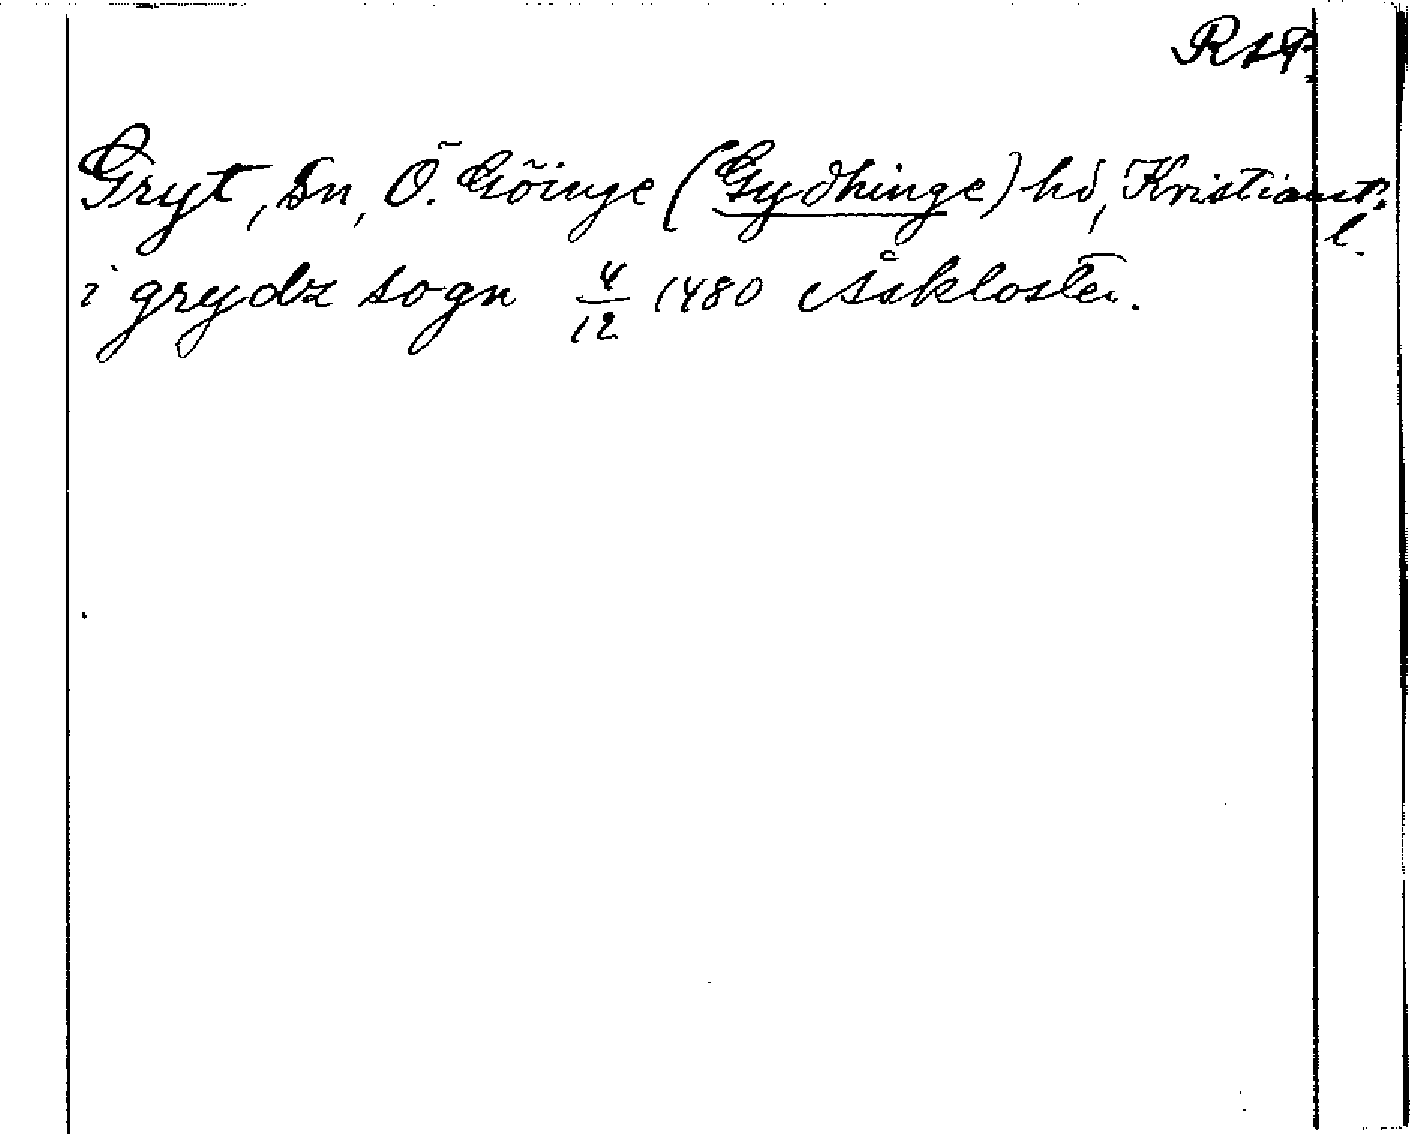 RAP.
Gryt, Sn, Ö. Göinge (Gydhinge) hd, Kristianst. l.
i grydz sogn 4/12 1480 Åskloster.